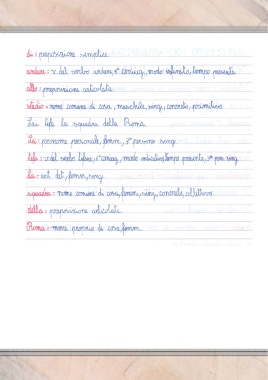 di = preposizione semplice
andare = v. dal verbo andare, 1ª coniug, modo infinito, tempo presente
allo = preposizione articolata
stadio = nome comune di cosa, maschile, sing, concreto, primitivo
Lei tifa la squadra della Roma.
Lei = pronome personale, femm, 3ª persona sing.
tifa = v. dal verbo tifare, 1ª coniug, modo indicativo, tempo presente, 3ª pers. sing.
la = art. det, femm, sing.
squadra = nome comune di cosa, femm, sing, concreto, collettivo
della = preposizione articolata
Roma = nome proprio di cosa, femm.